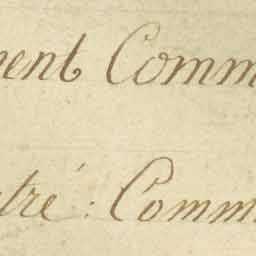 ment Comm
ttré : Comm